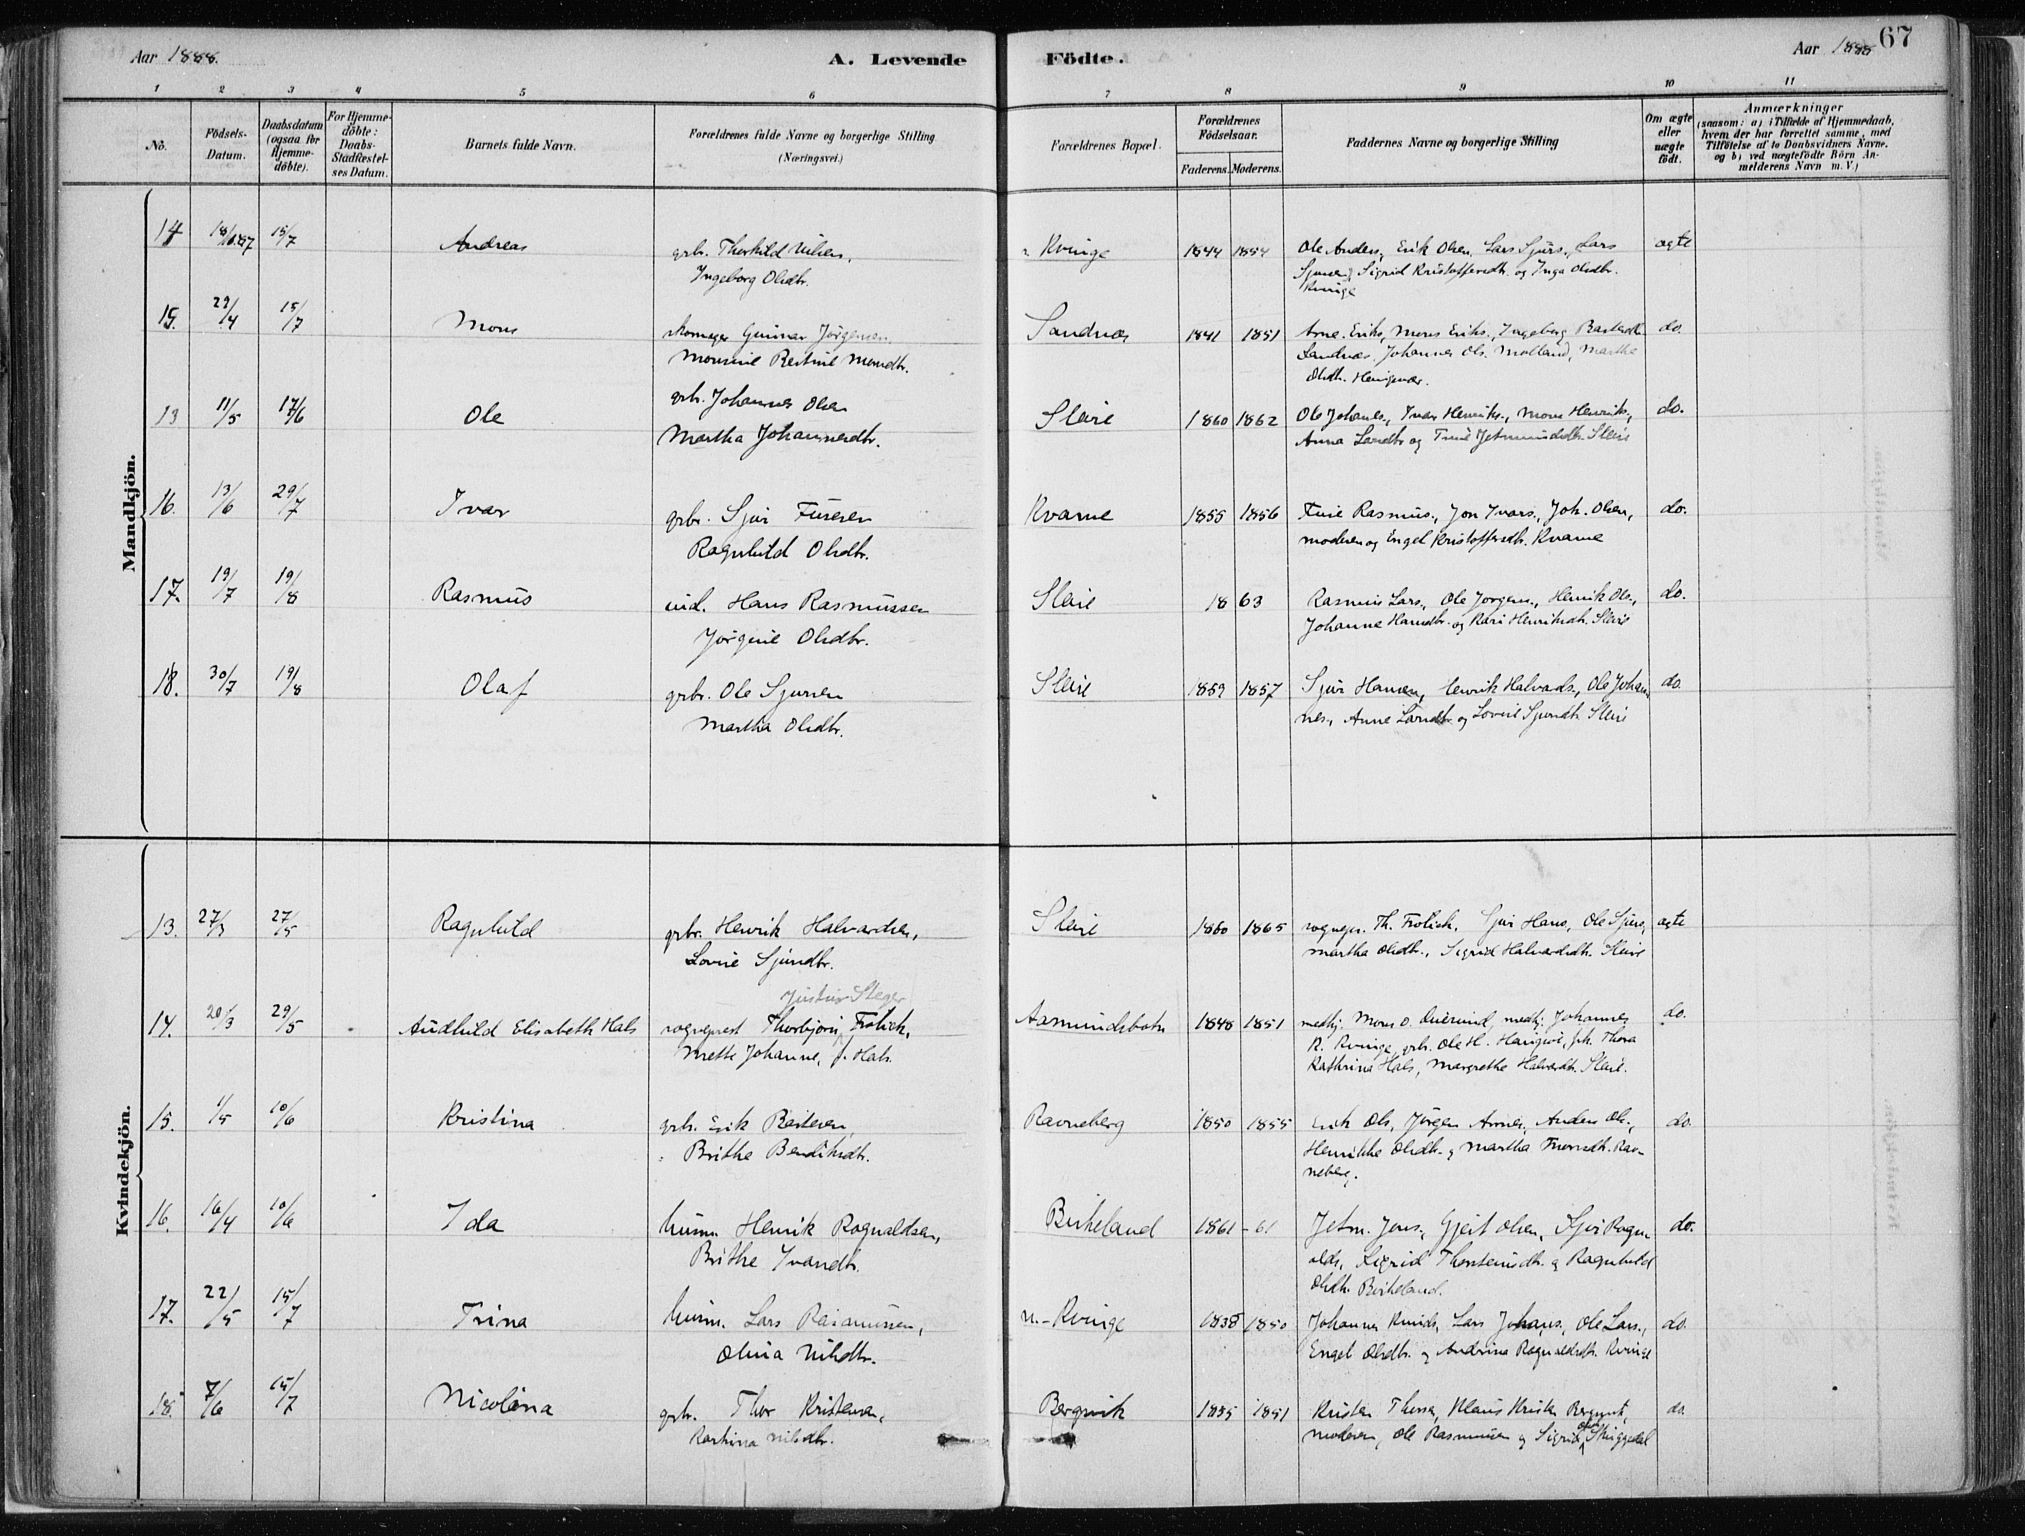 Aar 1888.
A. Levende
Födte.
Aar 1888
67
1 2 3 4 5 6 7 8 9 10 11
No.
Födsels-
Datum.
Daabsdatum
(ogsaa for
Hjemme-
döbte).
For Hjemme-
döbte:
Daabs-
Stadfæstel-
ses Datum.
Barnets fulde Navn.
Forældrenes fulde Navne og borgerlige Stilling
(Næringsvei.)
Forældrenes Bopæl.
Forældrenes
Födselsaar.
Faderens. Moderens.
Faddernes Navne og borgerlige Stilling
Om ægte
eller
uægte
födt.
Anmærkninger
(saasom: a) i Tilfælde af Hjemmedaab,
hvem der har forrettet samme, med
Tilföielse af to Daabsvidners Navne.
og b) ved uægtefödte Börn An-
melderens Navn m.V.)
Mandkjön.
14 15/7 Andreas
grbr. Thorkild Nilsen,
Ingeborg Olsdtr.
Kvinge 1844 1854
Ole Anders., Erik Olsen, Lars Sjurs., Lars
Sjursen, Sigrid Kristoffersdtr. og Inga Olsdtr.
Kvinge
ægte
15. 29/4 15/7 Mons
skomager Gunnar Jørgensen
Monsine Bertine Monsdtr.
Sandnæs 1841 1851
Arne Eriks., Mons Eriks., Ingeborg
Sandnæs. Johannes Ols. Molland, Marthe
Olsdtr.
do.
13 11/5 17/6 Ole
grbr. Johannes Olsen
Martha Johannesdtr.
Sleire 1860 1862
Ole Johannes., Ivar Henriks., Mons Henriks.,
Anna Larsdtr. og Trine Sleire
do.
16. 13/6 29/7 Ivar
grbr. Sjur
Ragnhild Olsdtr.
Kvarne 1855 1856
Rasmus., Jon Ivars., Joh. Olsen,
moderen og Engel Kristoffersdtr. Kvarne
do.
17. 19/7 19/8 Rasmus
ind. Hans Rasmussen
Jørgine Olsdtr.
Sleire 18 63
Rasmus Lars., Ole Jørgens., Henrik Ols.,
Johanne Hansdtr. og Kari Henriksdtr. Sleire
do.
18. 30/7 19/8 Olaf
grbr. Ole Sjursen
Martha Olsdtr.
Sleire 1859 1857
Sjur Hansen, Henrik Halvards., Ole Johan-
nes., Anne Larsdtr. og Lovise Sjursdtr. Sleire
do.
Kvindekjön.
13. 27/3 27/5 Ragnhild
grbr. Henrik Halvardsen,
Lovise Sjursdtr.
Sleire 1860 1865
sogepr. Th. Frölich, Sjur Hans., Ole Sjurs.,
Martha Olsdtr., Sigrid Halvardsdtr. Sleire
ægte
14. 20/3 29/5 Audhild Elisabeth Hals
Justus Steger
sogneprest Thorbjørn Frølich,
Mette Johanne, f. Hals.
Aasmundsbotn 1848 1851
medhj. Mons O. Duesund, medhj. Johannes
R. Kvinge, grbr. Ole H. frk. Thora
Kathrina Hals, Margrethe Halvardsdtr. Sleire.
do.
15. 1/5 10/6 Kristina
grbr. Erik
Brithe Bendiksdtr.
Ravneberg 1850 1855
Erik Ols., Jørgen Arnes., Anders Ols.,
Henrikke Olsdtr. og Martha Rav-
neberg.
do.
16. 16/4 10/6 Ida
husm. Henrik Ragnvaldsen,
Brithe Ivarsdtr.
Birkeland 1861 - 61
Jetm. Jens., Gjert Olsen, Sjur Ragn-
valds., Sigrid Thorsteinsdtr. og Ragnhild
Olsdtr. Birkeland.
do.
17. 22/5 15/7 Trina
husm. Lars Rasmussen,
Olina Nilsdtr.
n. Kvinge 1838 1850
Johannes Knuds., Lars Johans., Ole Lars.,
Engel Olsdtr. og Andrina Ragnvaldsdtr. Kvinge
do.
18. 7/6 15/7 Nicolina
grbr. Thor Kristensen,
Nilsdtr.
Bergsvik 1835 1851
Kristen Thors., Klaus Kristen. Bergsvik,
moderen, Ole Rasmussen og Sigrid
do.